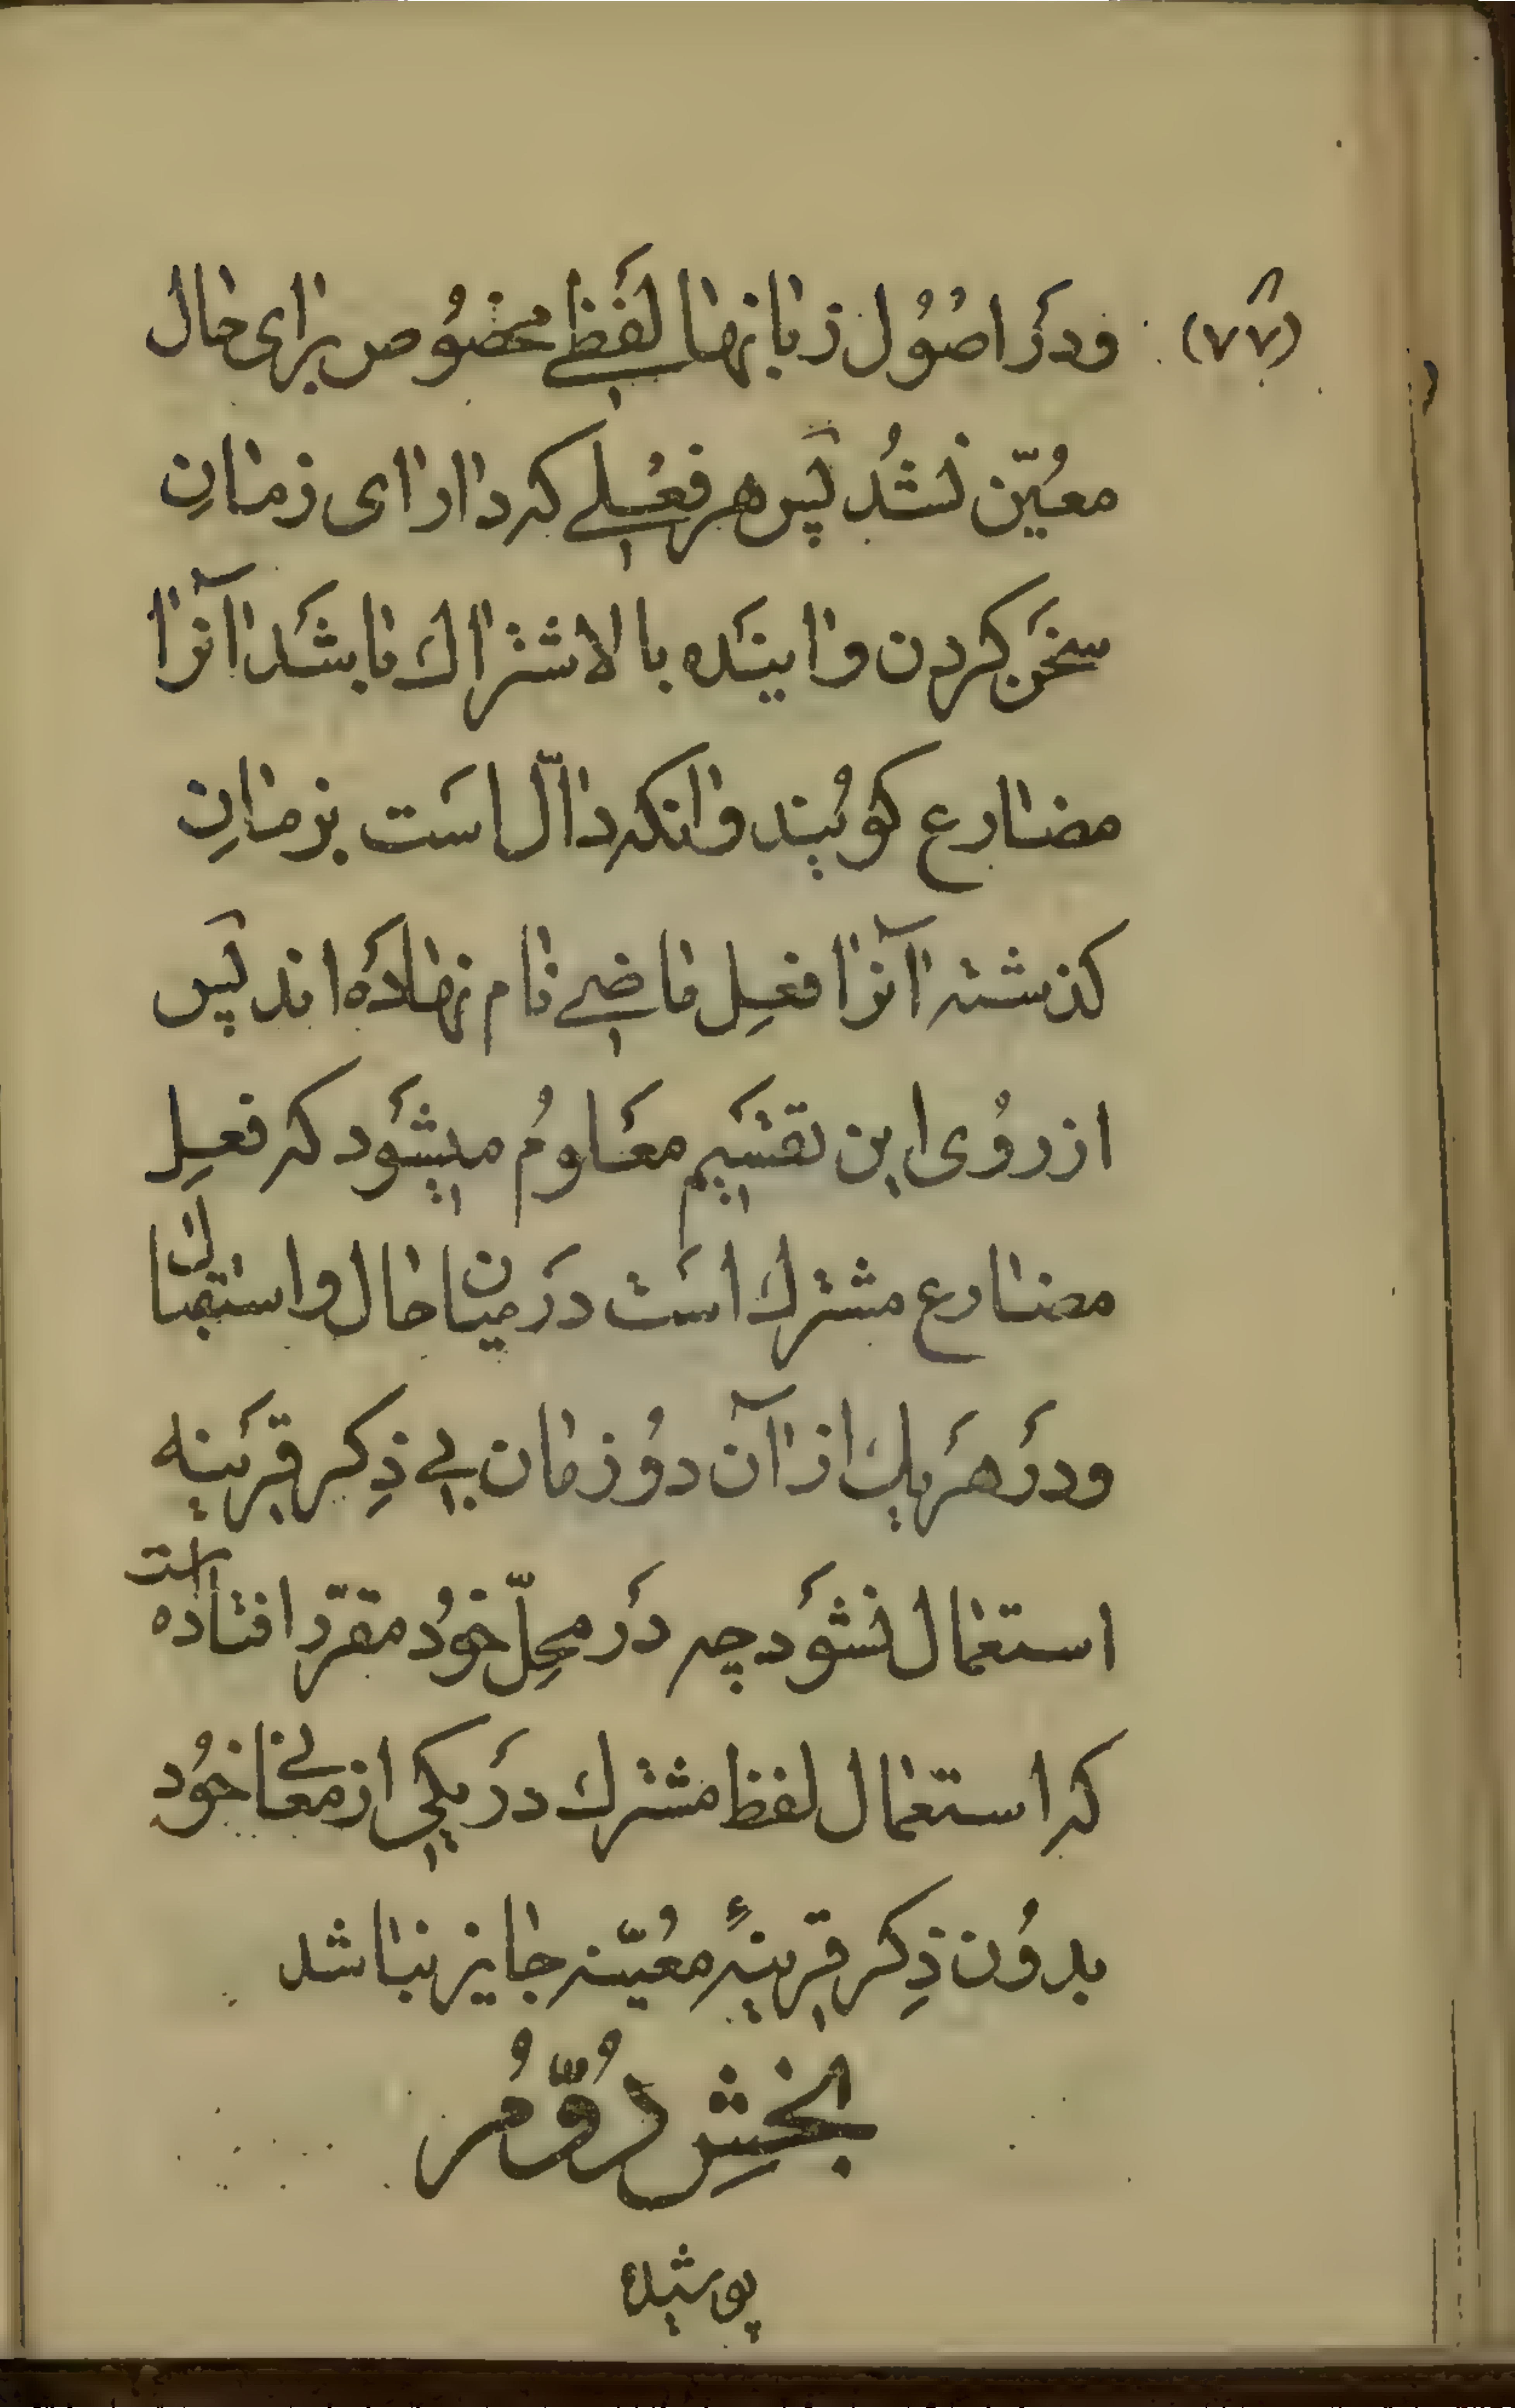 (۷۷) ودَر اصُول زبانها لفَظی مخصُوص برای حال
معُیّن نشُد پَس هر فعُلی که دارای زمانِ
سخَن کردن و اینَده بالاشتراك باشَد آنرا
مضارع کویُند وانکه دالّ استَ بزمانِ
کذشته آنرا فعِل ماضی نام نهادَه اند پَس
از رُوی این تقسَیم معَلومُ میشَود که فعِل
مضارع مشترك استَ دَر میان حال و استقبال
ودَر هَریك از آن دوُ زمان بی ذِکر قرَینه
استعمال نشَود چه دَر محِلّ خوُد مقرّر افتاده است
که استعمال لفظ مشترك دَر یکی از معانی خوُد
بدوُن ذِکر قرینهٔ معُیّنه جایز نباشد
بخشِ دُوّمُ
پوشیدهٔ